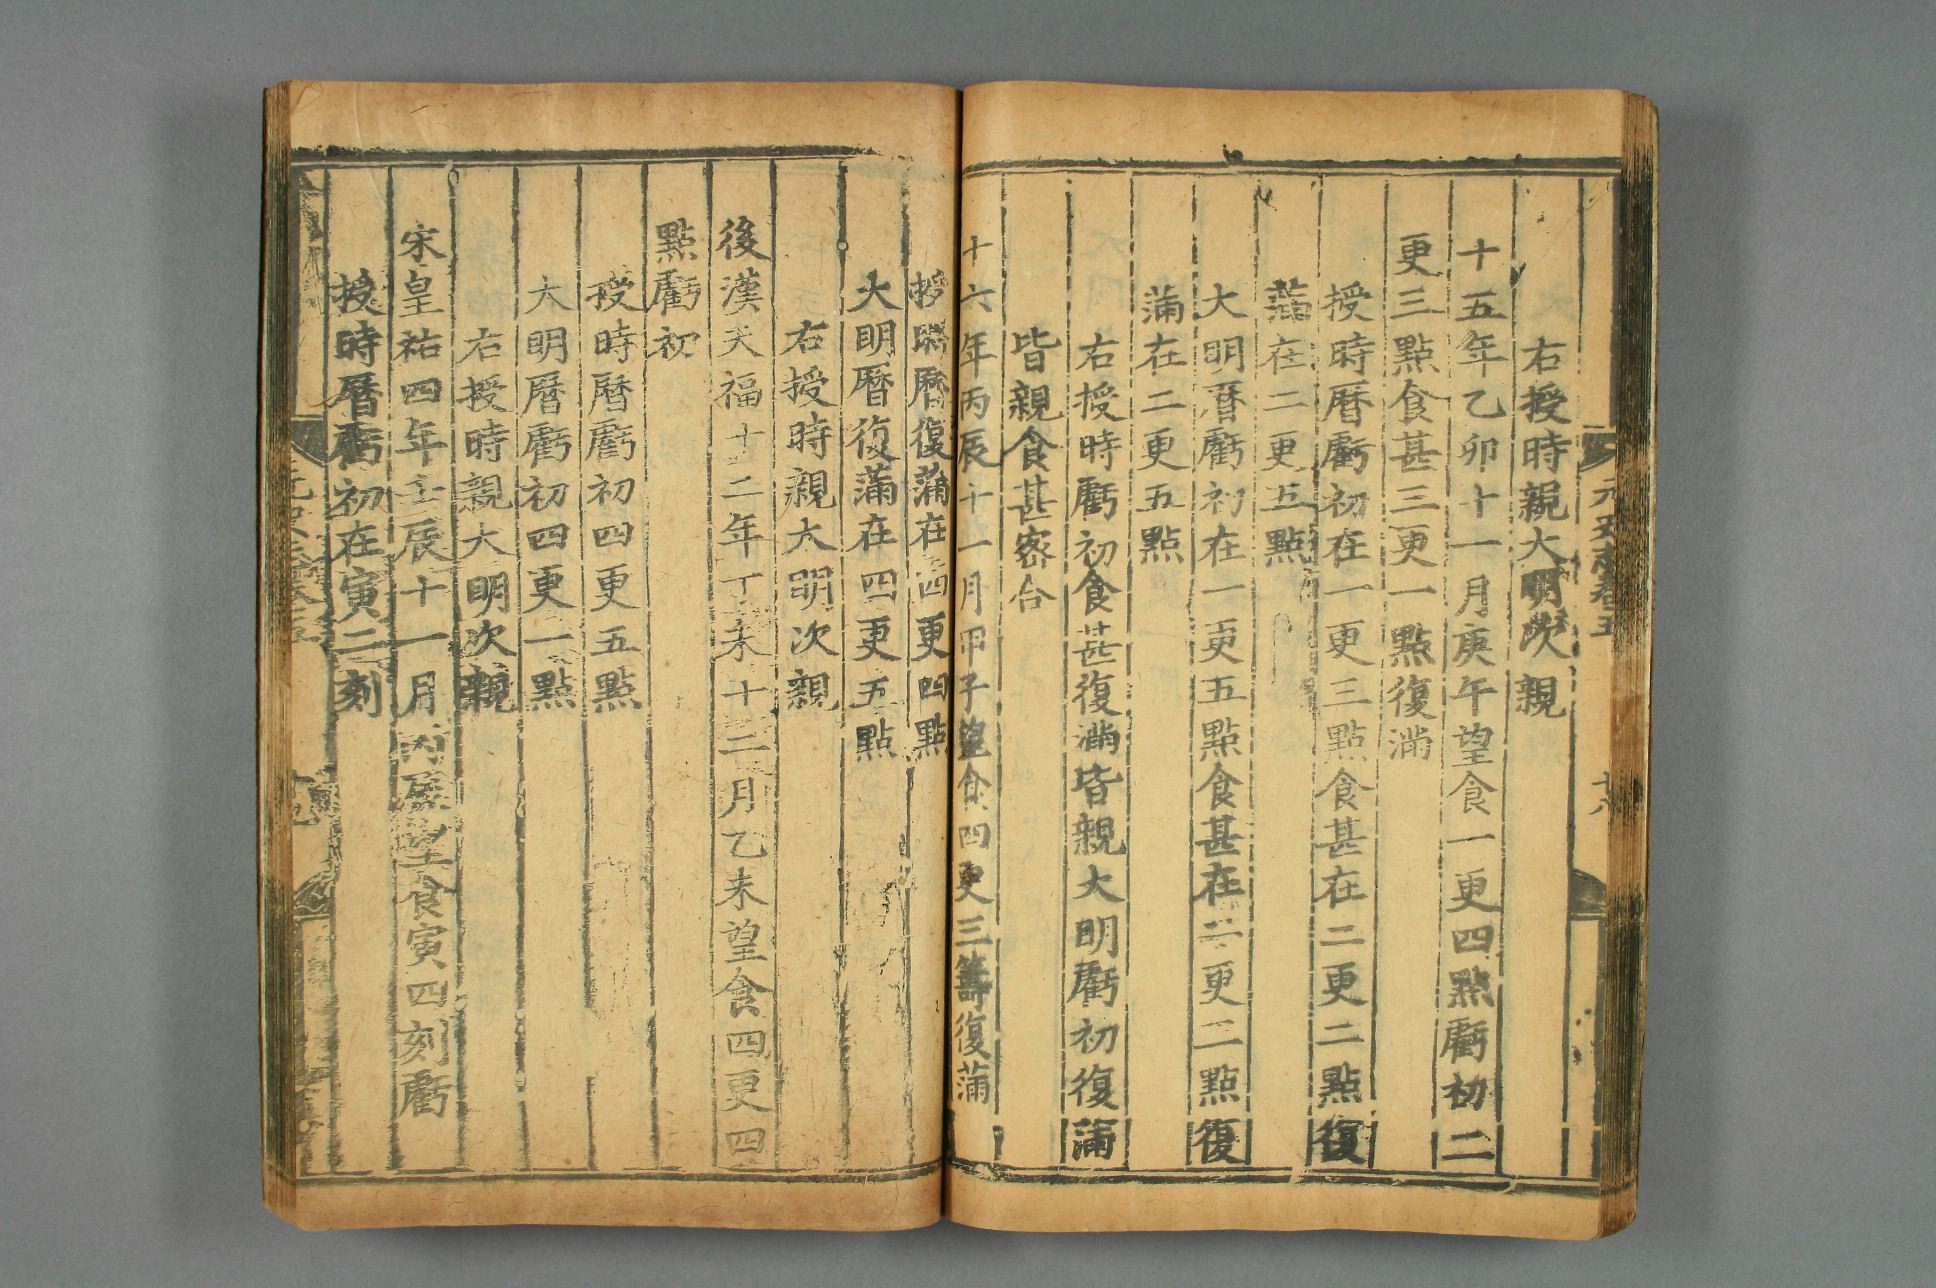 元史志卷五 十八
右授時親大明次親
十五年乙卯十一月庚午望食一更四點虧初二
更三點食甚三更一點復滿
授時曆虧初在一更三點食甚在二更二點復
滿在二更五點
大明曆虧初在一更五點食甚在二更二點復
滿在二更五點
右授時虧初食甚復滿皆親大明虧初復滿
皆親食甚密合
十六年丙辰十一月甲子望食四更三籌復滿
授時曆復滿在四更四點
大明曆復滿在四更五點
右授時親大明次親
後漢天福十二年丁未十二月乙未望食四更四
點虧初
授時曆虧初四更五點
大明曆虧初四更一點
右授時親大明次親
宋皇祐四年壬辰十一月丙辰望食寅四刻虧
授時曆虧初在寅二刻